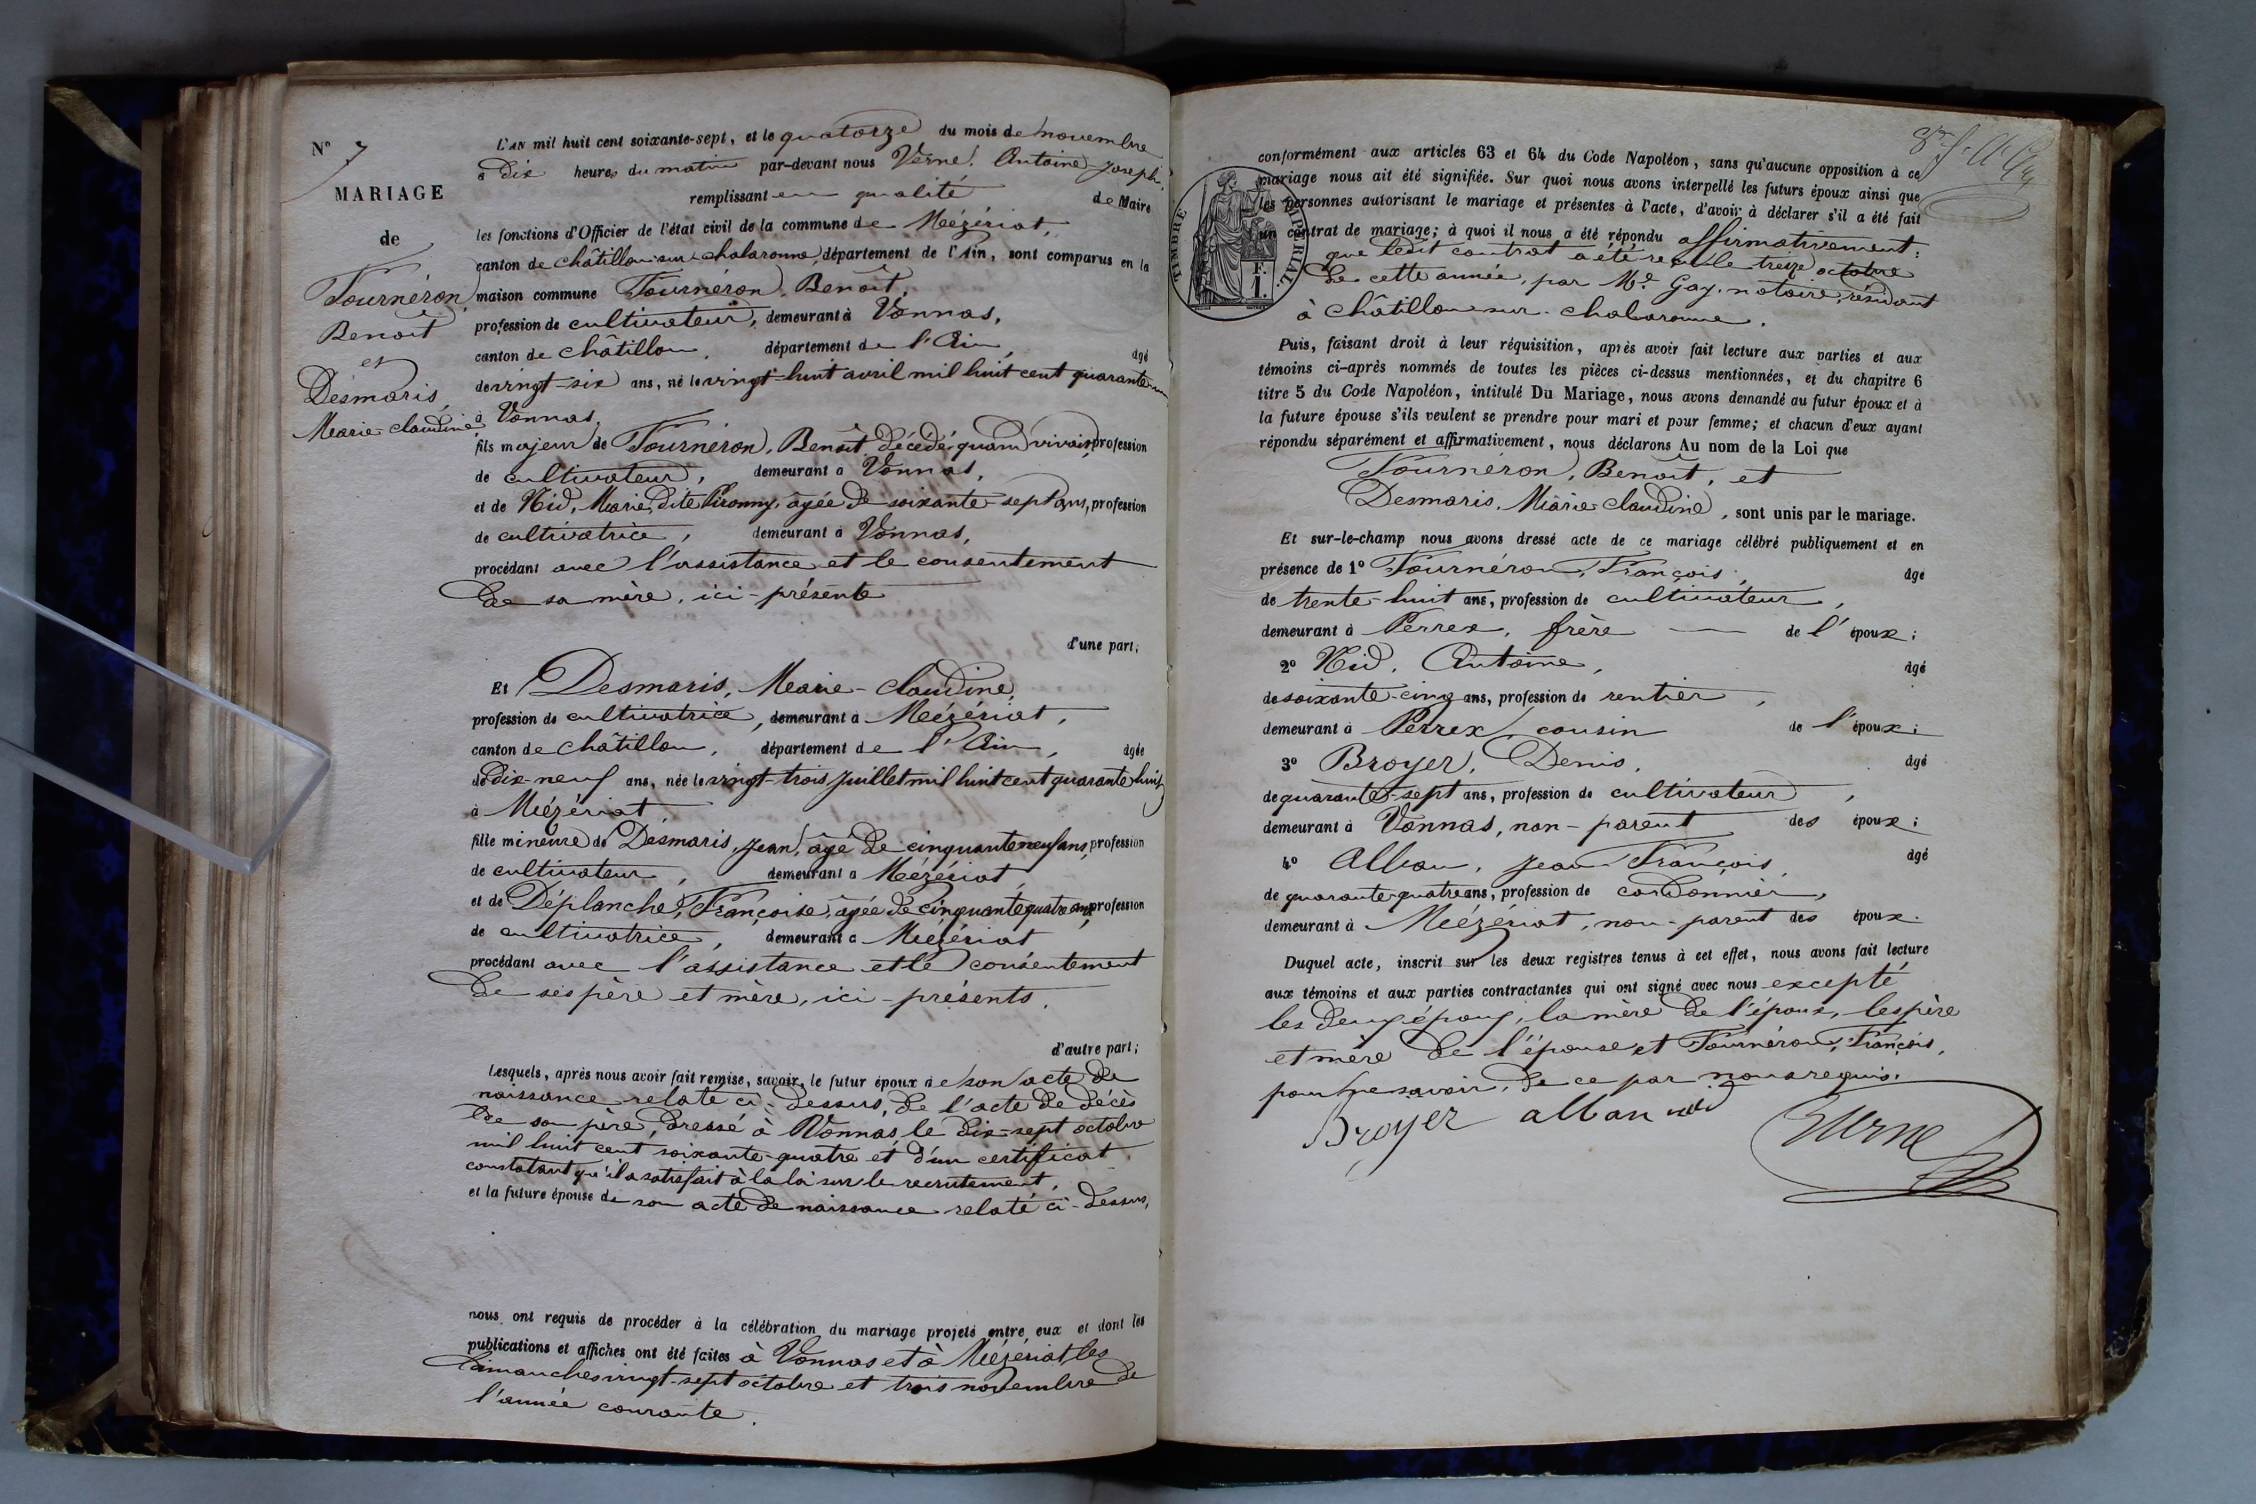 N° 7
MARIAGE
de
Fournéron,
Benoît
et
Desmaris,
Marie-claudine
L'AN mil huit cent soixante-sept, et le quatorze du mois de novembre
à dix heures du matin par-devant nous Verne, Antoine-Joseph,
remplissant en qualité de Maire
les fonctions d'Officier de l'état civil de la commune de Mézériat,
canton de châtillon-sur-chalaronne, département de l'Ain, sont comparus en la
maison commune Fournéron, Benoît,
profession de cultivateur, demeurant à Vonnas,
canton de châtillon, département de l'Ain, âgé
de vingt-six ans, né le vingt-huit avril mil huit cent quarante-un
à Vonnas,
fils majeur de Fournéron, Benoît, décédé, quand vivait, profession
de cultivateur, demeurant à Vonnas,
et de Nid, Marie, dite Pironny, âgée de soixante-sept ans, profession
de cultivatrice, demeurant à Vonnas,
procédant avec l'assistance et le consentement
de sa mère, ici-présente
d'une part;
Et Desmaris, Marie-claudine,
profession de cultivatrice, demeurant à Mézériat,
canton de châtillon, département de l'Ain, âgée
de dix-neuf ans, née le vingt-trois juillet mil huit cent quarante huit,
à Mézériat,
fille mineure de Desmaris, jean, âgé de cinquante neuf ans, profession
de cultivateur, demeurant à Mézériat,
et de Déplanche, Françoise, âgée de cinquante quatre ans, profession
de cultivatrice, demeurant à Mézériat
procédant avec l'assistance et le consentement
de ses père et mère, ici-présents.
d'autre part;
Lesquels, après nous avoir fait remise, savoir, le futur époux de son acte de
naissance relaté ci-dessus, de l'acte de décès
de son père, dressé à Vonnas, le dix-sept octobre
mil huit cent soixante-quatre et d'un certificat
constatant qu'il a satisfait à la loi sur le recrutement,
et la future épouse de son acte de naissance relaté ci-dessus,
nous ont requis de procéder à la célébration du mariage projeté entre eux et dont les
publications et affiches ont été faites à Vonnas et à Mézériat, les
dimanches vingt-sept octobre et trois novembre de
l'année courante.
TIMBRE IMPÉRIAL
F.
1.
conformément aux articles 63 et 64 du Code Napoléon, sans qu'aucune opposition à ce
mariage nous ait été signifiée. Sur quoi nous avons interpellé les futurs époux ainsi que
les personnes autorisant le mariage et présentes à l'acte, d'avoir à déclarer s'il a été fait
un contrat de mariage; à quoi il nous a été répondu affirmativement:
que ledit contrat a été reçu le treize octobre
de cette année, par Me Gay, notaire, résidant
à châtillon-sur-chalaronne.
Puis, faisant droit à leur réquisition, après avoir fait lecture aux parties et aux
témoins ci-après nommés de toutes les pièces ci-dessus mentionnées, et du chapitre 6
titre 5 du Code Napoléon, intitulé Du Mariage, nous avons demandé au futur époux et à
la future épouse s'ils veulent se prendre pour mari et pour femme; et chacun d'eux ayant
répondu séparément et affirmativement, nous déclarons Au nom de la Loi que
Fournéron, Benoît, et
Desmaris, Marie claudine, sont unis par le mariage.
Et sur-le-champ nous avons dressé acte de ce mariage célébré publiquement et en
présence de 1° Fournéron, François, âgé
de trente-huit ans, profession de cultivateur,
demeurant à Perrex, frère de l'époux;
2° Nid, Antoine, âgé
de soixante-cinq ans, profession de rentier,
demeurant à Perrex, cousin de l'époux;
3° Broyer, Denis, âgé
de quarante-sept ans, profession de cultivateur,
demeurant à Vonnas, non-parent des époux;
4° Alban, jean François, âgé
de quarante-quatre ans, profession de cordonnier,
demeurant à Mézériat, non-parent des époux.
Duquel acte, inscrit sur les deux registres tenus à cet effet, nous avons fait lecture
aux témoins et aux parties contractantes qui ont signé avec nous excepté
les deux époux, la mère de l'époux, les père
et mère de l'épouse et Fournéron, François,
pour ne savoir, de ce par nous requis.
Broyer alban nid Verne